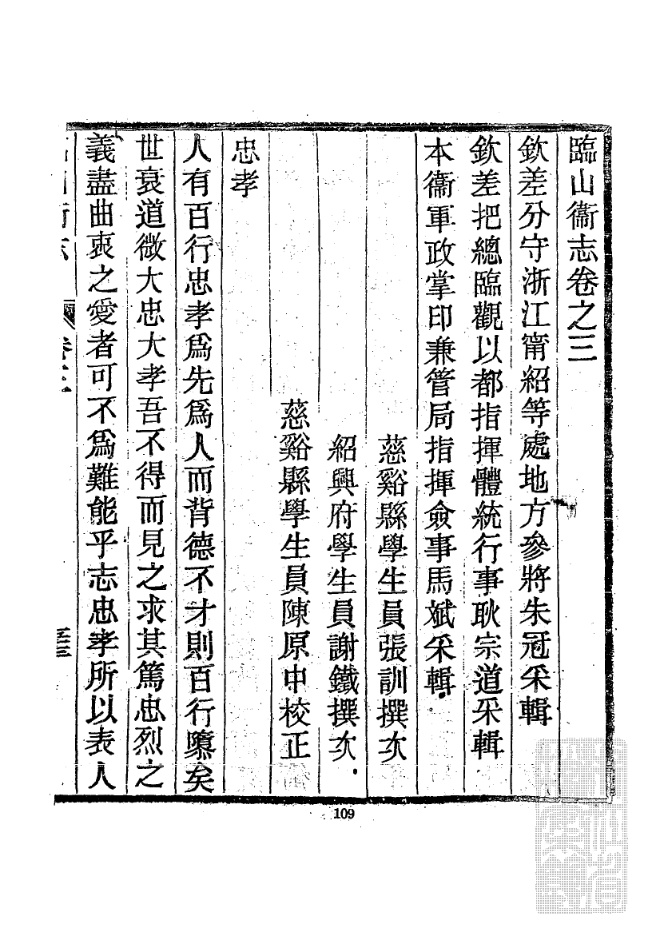 臨山衞志卷之三
欽差分守浙江甯紹等處地方參將朱冠采輯
欽差把總臨觀以都指揮體統行事耿宗道采輯
本衞軍政掌印兼管局指揮僉事馬斌采輯
慈谿縣學生員張訓撰次
紹興府學生員謝鐵撰次
慈谿縣學生員陳原中校正
忠孝
人有百行忠孝爲先爲人而背德不才則百行隳矣
世衰道微大忠大孝吾不得而見之求其篤忠烈之
義盡曲衷之愛者可不爲難能乎志忠孝所以表人
卷三
109